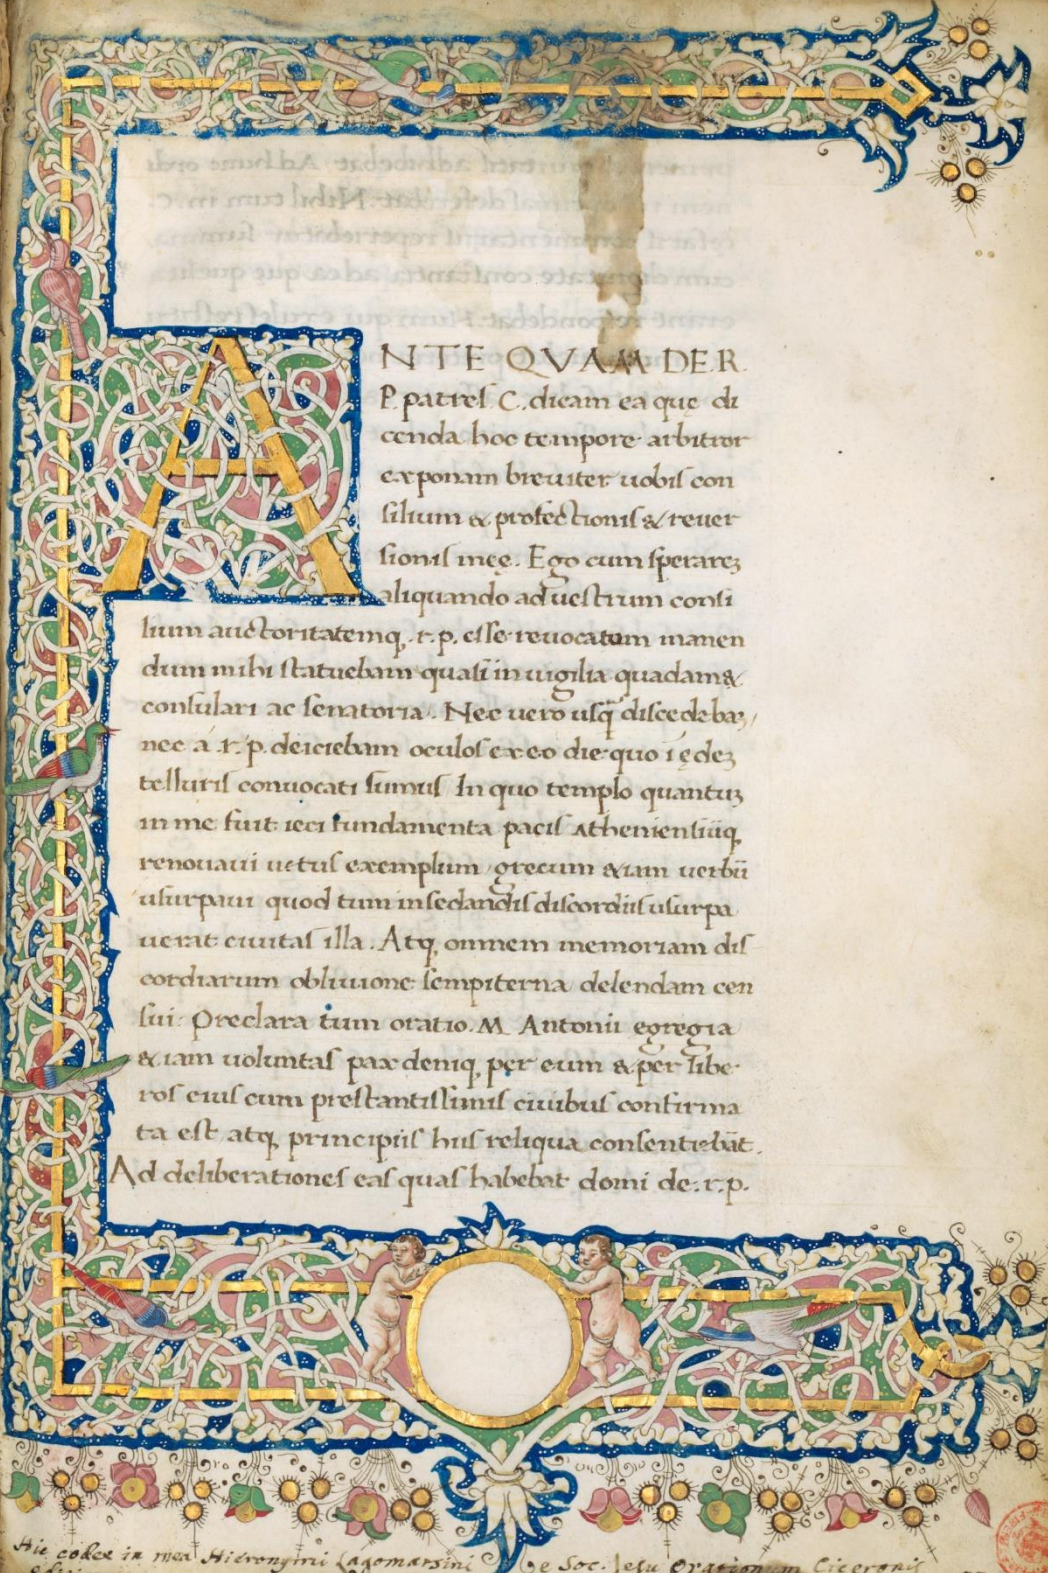 ANTE QVAM DE.R.
P. patres C. dicam ea que di
cenda hoc tempore arbitror
exponam breuiter uobis con
silium & profectionis & reuer
sionis meę. Ego cum sperareꝫ
aliquando ad uestrum consi
lium auctoritatemq̨ .r.p. esse reuocatum manen
dum mihi statuebam quasi in uigilia quadam &
consulari ac senatoria. Nec uero usq̃ discedebaꝫ
nec a .r.p. deiciebam oculos ex eo die quo ī ędeꝫ
telluris conuocati sumus In quo templo quantuꝫ
in me fuit ieci fundamenta pacis Atheniensiūq̨
renouaui uetus exemplum grecum & iam uerbū
usurpaui quod tum in sedandis discordiis usurpa
uerat ciuitas illa. Atq̨ omnem memoriam dis
cordiarum obliuione sempiterna delendam cen
sui. Preclara tum oratio .M. Antonii egregia
& iam uoluntas pax deniq̨ per eum & per libe
ros eius cum prestantissimis ciuibus confirma
ta est atq̨ principiis his reliqua consentiebāt.
Ad deliberationes eas quas habebat domi de .r.p.
Hic codex in mea Hieronymi Lagomarsini e Soc. Iesu Orationum Ciceronis